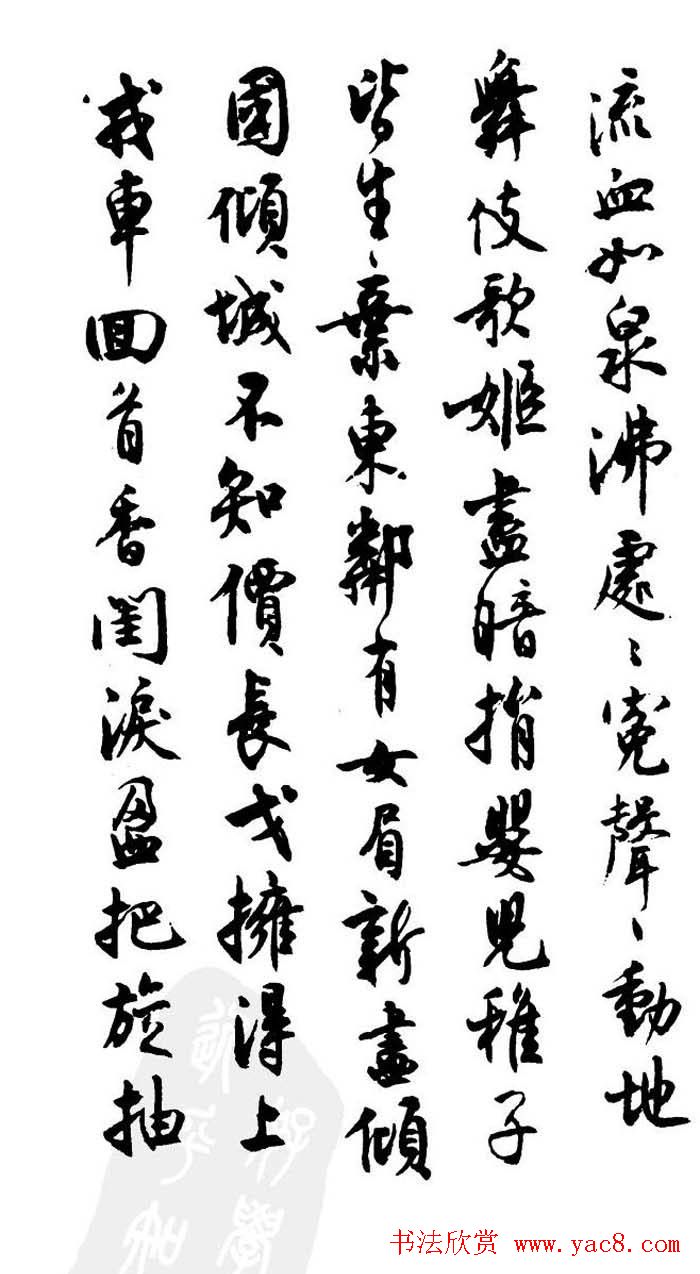 流血如泉沸處〻冤聲〻動地
舞伎歌姬盡暗捐嬰兒稚子
皆生〻棄東鄰有女眉新畫傾
國傾城不知價長戈擁得上
戎車回首香閨淚盈把旋抽
书法欣赏 www.yac8.com